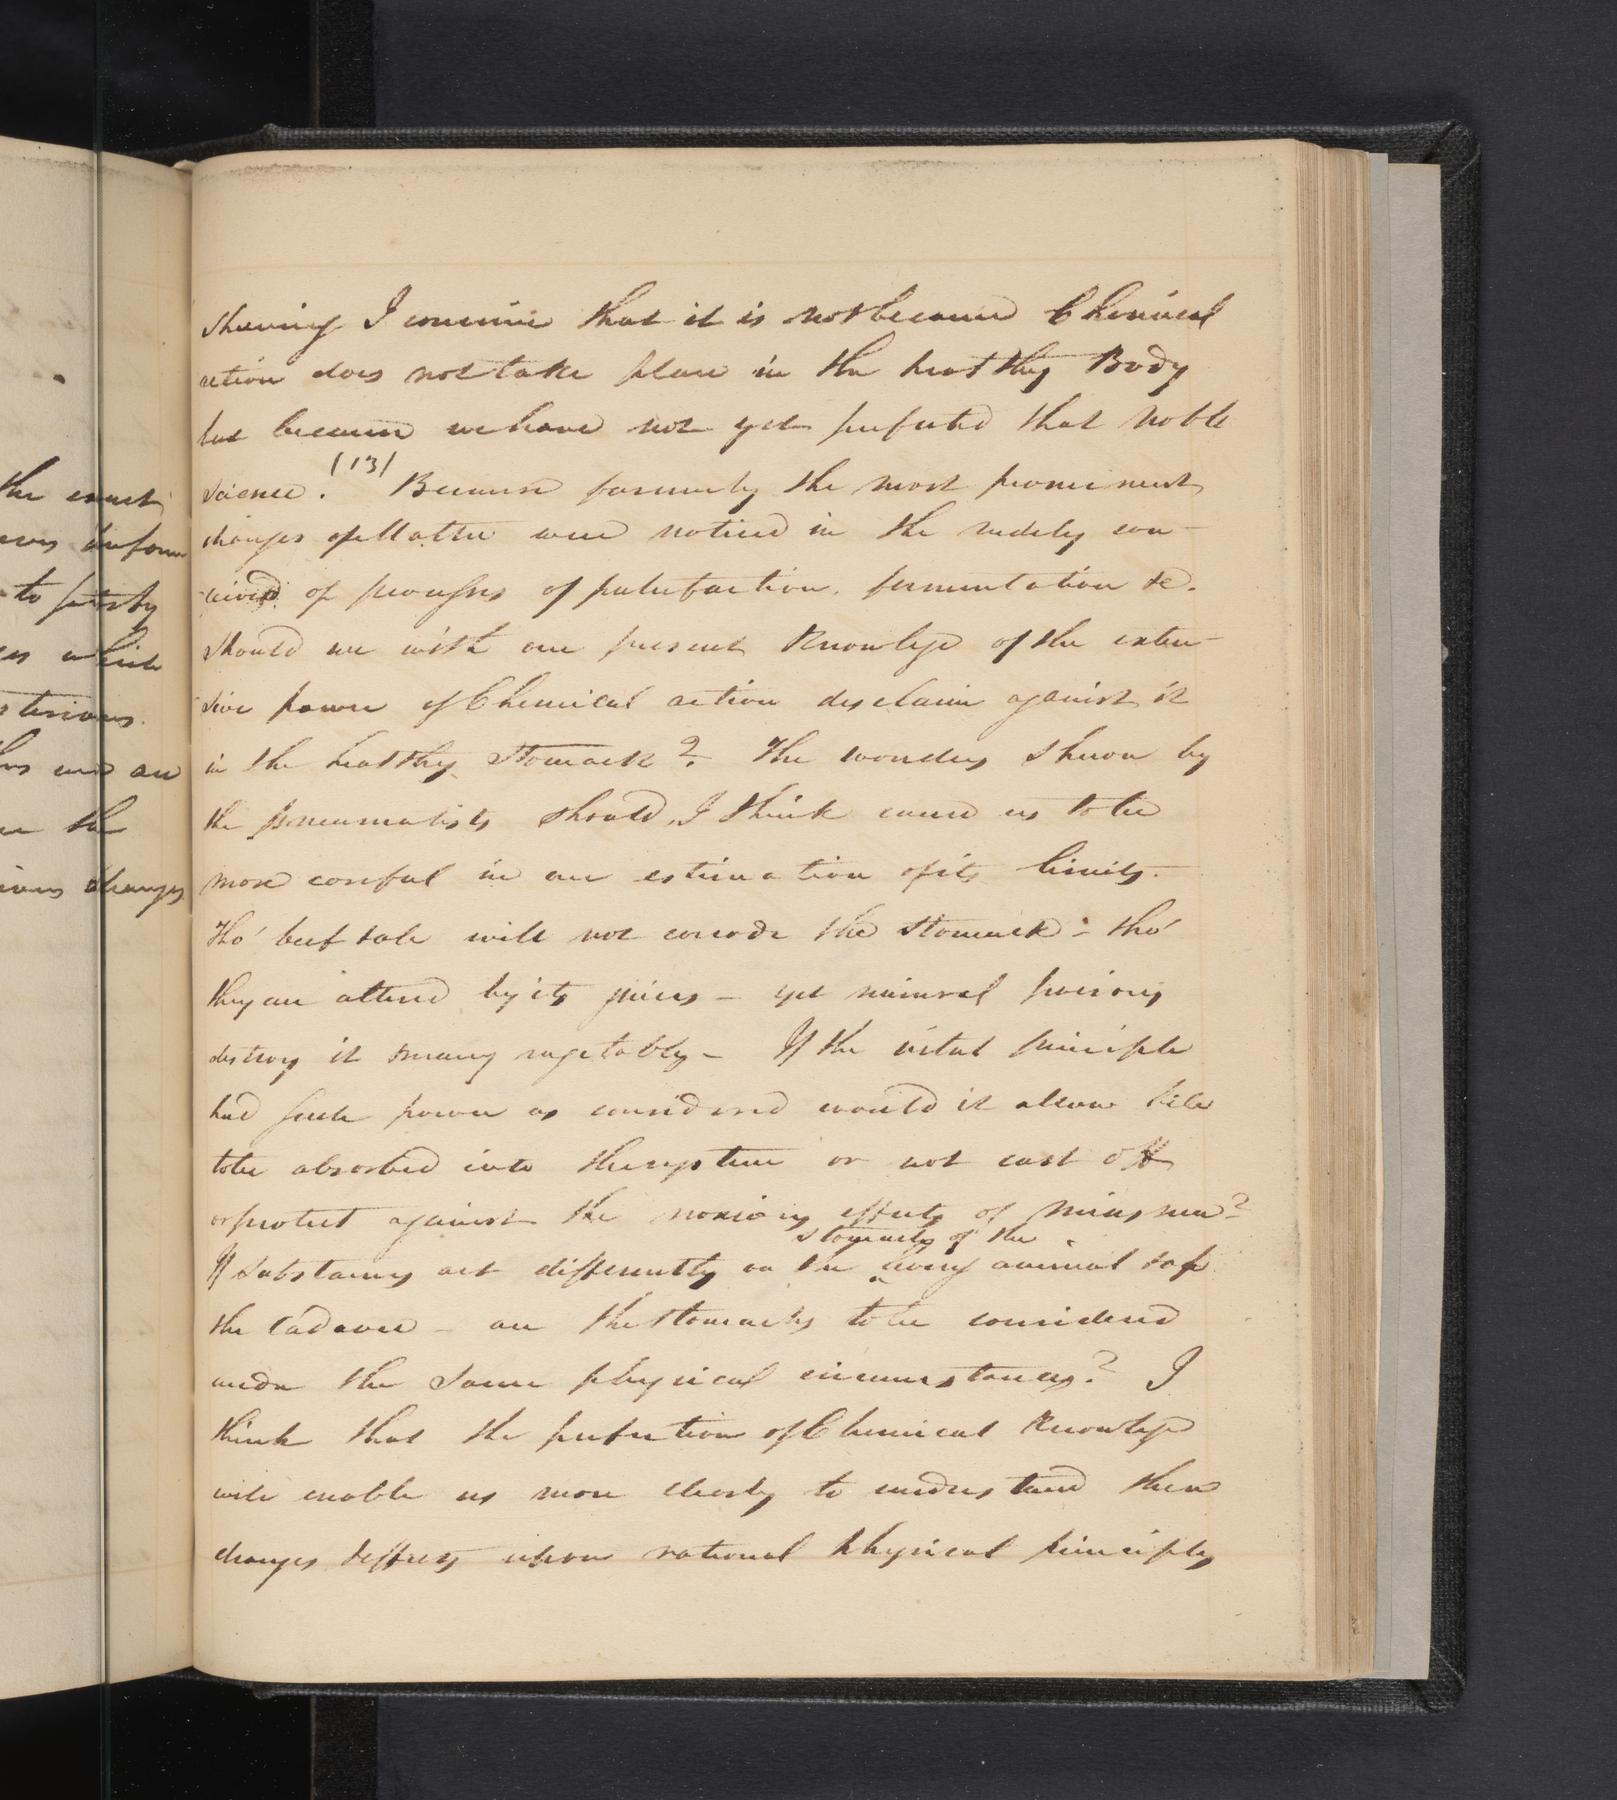 the exact
to satisfy
which
and an
the
changes
shewing I conceive that it is not because Chemical
action does not take place in the healthy Body
but because we have not yet perfected that noble
science. (13) Because formerly the most prominent
changes of Matter were noticed in the rudely con-
-ceived of processes of putrefaction, fermentation &c.
should we with our present Knowlege of the exten-
sive power of Chemical action desclaim against it
in the healthy Stomack? The wonders shewn by
the pneumatists should, I think cause us to be
more careful in our estimation of its limits.
Tho' beef will not corrode the Stomack - tho'
they are altered by its juices - yet mineral poisons
destroy it & many vegetables - If the vital principle
had such power as considered would it allow bile
to be absorbed into the system or not cast off
or protect against the noxious effects of miasmea?
stomachs of the
If substances act differently on the living animal & of
the Cadaver - are the stomachs to be considered
under the same physical circumstances? I
think that the perfection of Chemical Knowlege
will enable us more clearly to understand these
changes & effects upon rational Physical principles